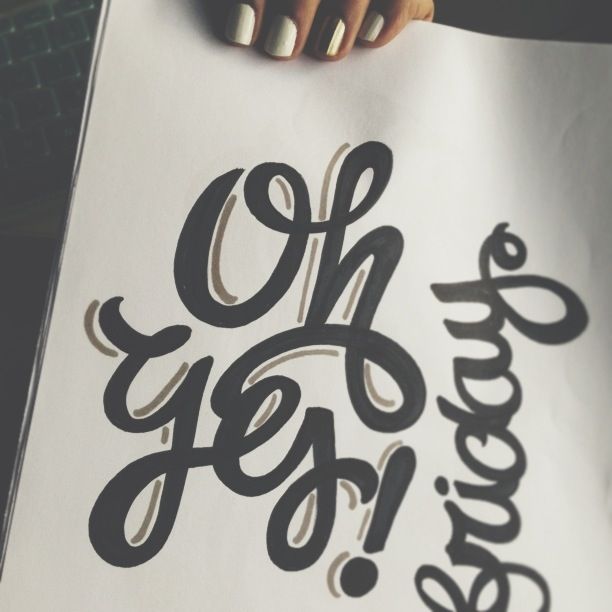 Oh
yes!
friday